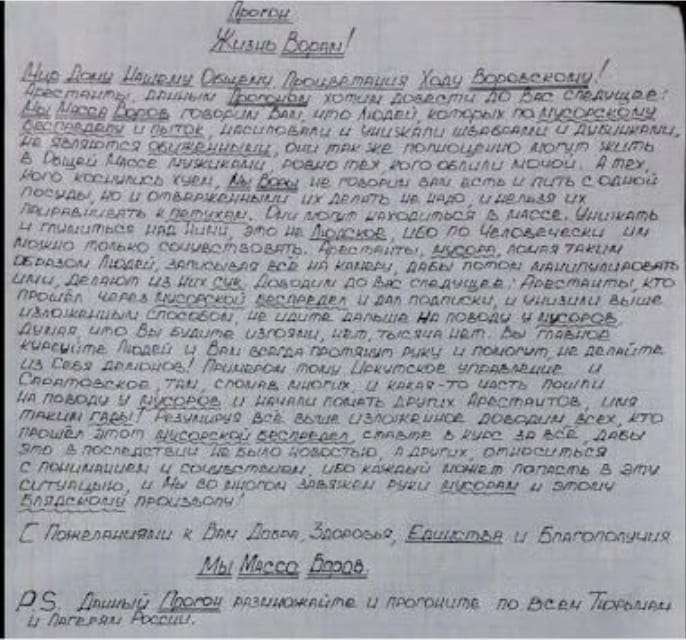 Прогон
Жизнь Ворам!
Мир Дому Нашему Общему, Процветания Ходу Воровскому!
Арестанты, данным Прогоном хотим довести до Вас следущее:
Мы Масса Воров говорим Вам, что Людей, которых по мусорскому
беспределу и пыток, насиловали и унижали швабрами и дубинками,
не являются обиженными, они так же полноценно могут жить
в Общей Массе мужиками, ровно тех, кого облили мочой. А тех,
кого коснулись хуем, Мы Воры не говорим вам есть и пить с одной
посуды, но и отверженными их делать не надо, и нельзя их
приравнивать к петухам. Они могут находиться в массе. Унижать
и глумиться над ними, это не Людское, ибо по Человечески им
можно только сочувствовать. Арестанты, мусора, ломая таким
образом Людей, записывая всё на камеру, дабы потом манипулировать
ими, делают из них сук. Доводим до Вас следущее: Арестанты, кто
прошёл через мусорской беспредел и дал подписки, и унизили выше
изложенным способом, не идите дальше на поводу у мусоров,
думая, что Вы будите изгоями, нет, тысяча нет. Вы главное
курсуйте Людей и Вам всегда протянут руку и помогут, не делайте
из Себя демонов! Примером тому Иркутское управление и
Саратовское, там, сломав многих, и какая-то часть пошли
на поводу у мусоров и начали ломать других Арестантов, имя
таким гады! Резумируя всё выше изложенное доводим всех, кто
прошёл этот мусорской беспредел, ставте в курс за всё, дабы
это в последствии не было новостью, а других, относиться
с пониманием и сочувствием, ибо каждый может попасть в эту
ситуацыю, и Мы во многом завяжем руки мусорам и этому
блядскому произволу!
С Пожеланиями к Вам Добра, Здоровья, Единства и Благополучия
Мы Масса Воров.
P.S. Данный Прогон размножайте и прогоните по всем Тюрьмам
и Лагерям России.